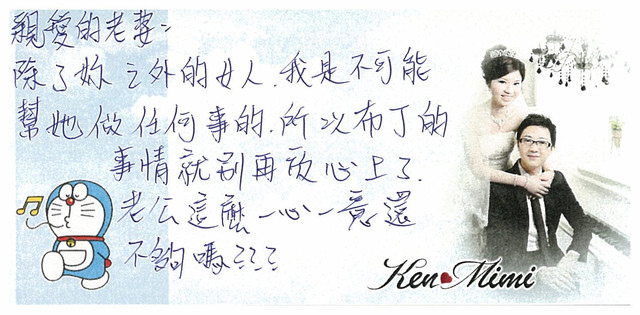 親愛的老婆:
除了妳之外的女人.我是不可能
幫她做任何事的.所以布丁的
事情就別再放心上了.
老公這麼一心一意還
不夠嗎???
Ken Mimi